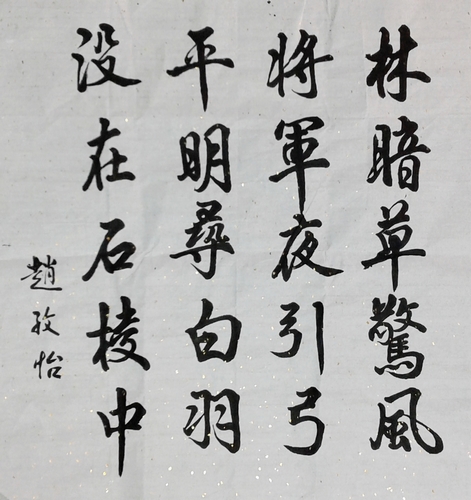 林暗草驚風
將軍夜引弓
平明尋白羽
没在石棱中
趙孜怡